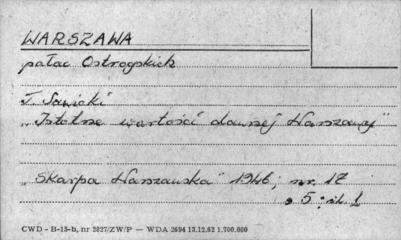 WARSZAWA
pałac Ostrogskich
T. Sawicki
„Istotne wartości dawnej Warszawy"
„Skarpa Warszawska" 1946, nr. 12
s 5; il. 1
CWD - B-15-b, nr 2827/ZW/P — WDA 2694 13.12.62 1.700.000